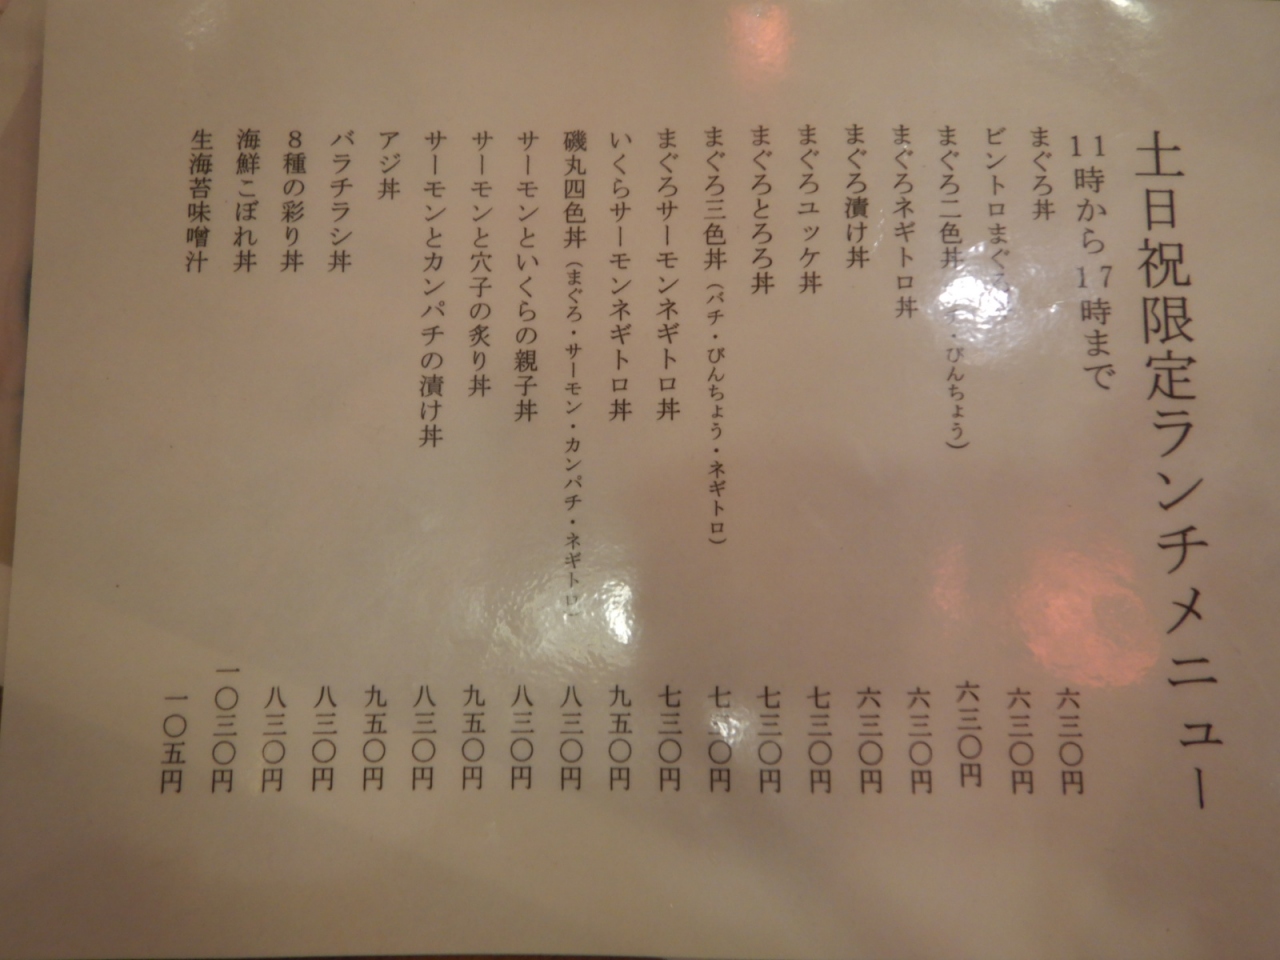 土日祝限定ランチメニュー
11時から17時まで
まぐろ丼 六三〇円
ビントロまぐろ 六三〇円
まぐろ二色丼 ・びんちょう） 六三〇円
まぐろネギトロ丼 六三〇円
まぐろ漬け丼 六三〇円
まぐろユッケ丼 七三〇円
まぐろとろろ丼 七三〇円
まぐろ三色丼（バチ・びんちょう・ネギトロ） 七三〇円
まぐろサーモンネギトロ丼 七三〇円
いくらサーモンネギトロ丼 九五〇円
磯丸四色丼（まぐろ・サーモン・カンパチ・ネギトロ） 八三〇円
サーモンといくらの親子丼 八三〇円
サーモンと穴子の炙り丼 九五〇円
サーモンとカンパチの漬け丼 八三〇円
アジ丼 九五〇円
バラチラシ丼 八三〇円
8種の彩り丼 八三〇円
海鮮こぼれ丼 一〇三〇円
生海苔味噌汁 一〇五円